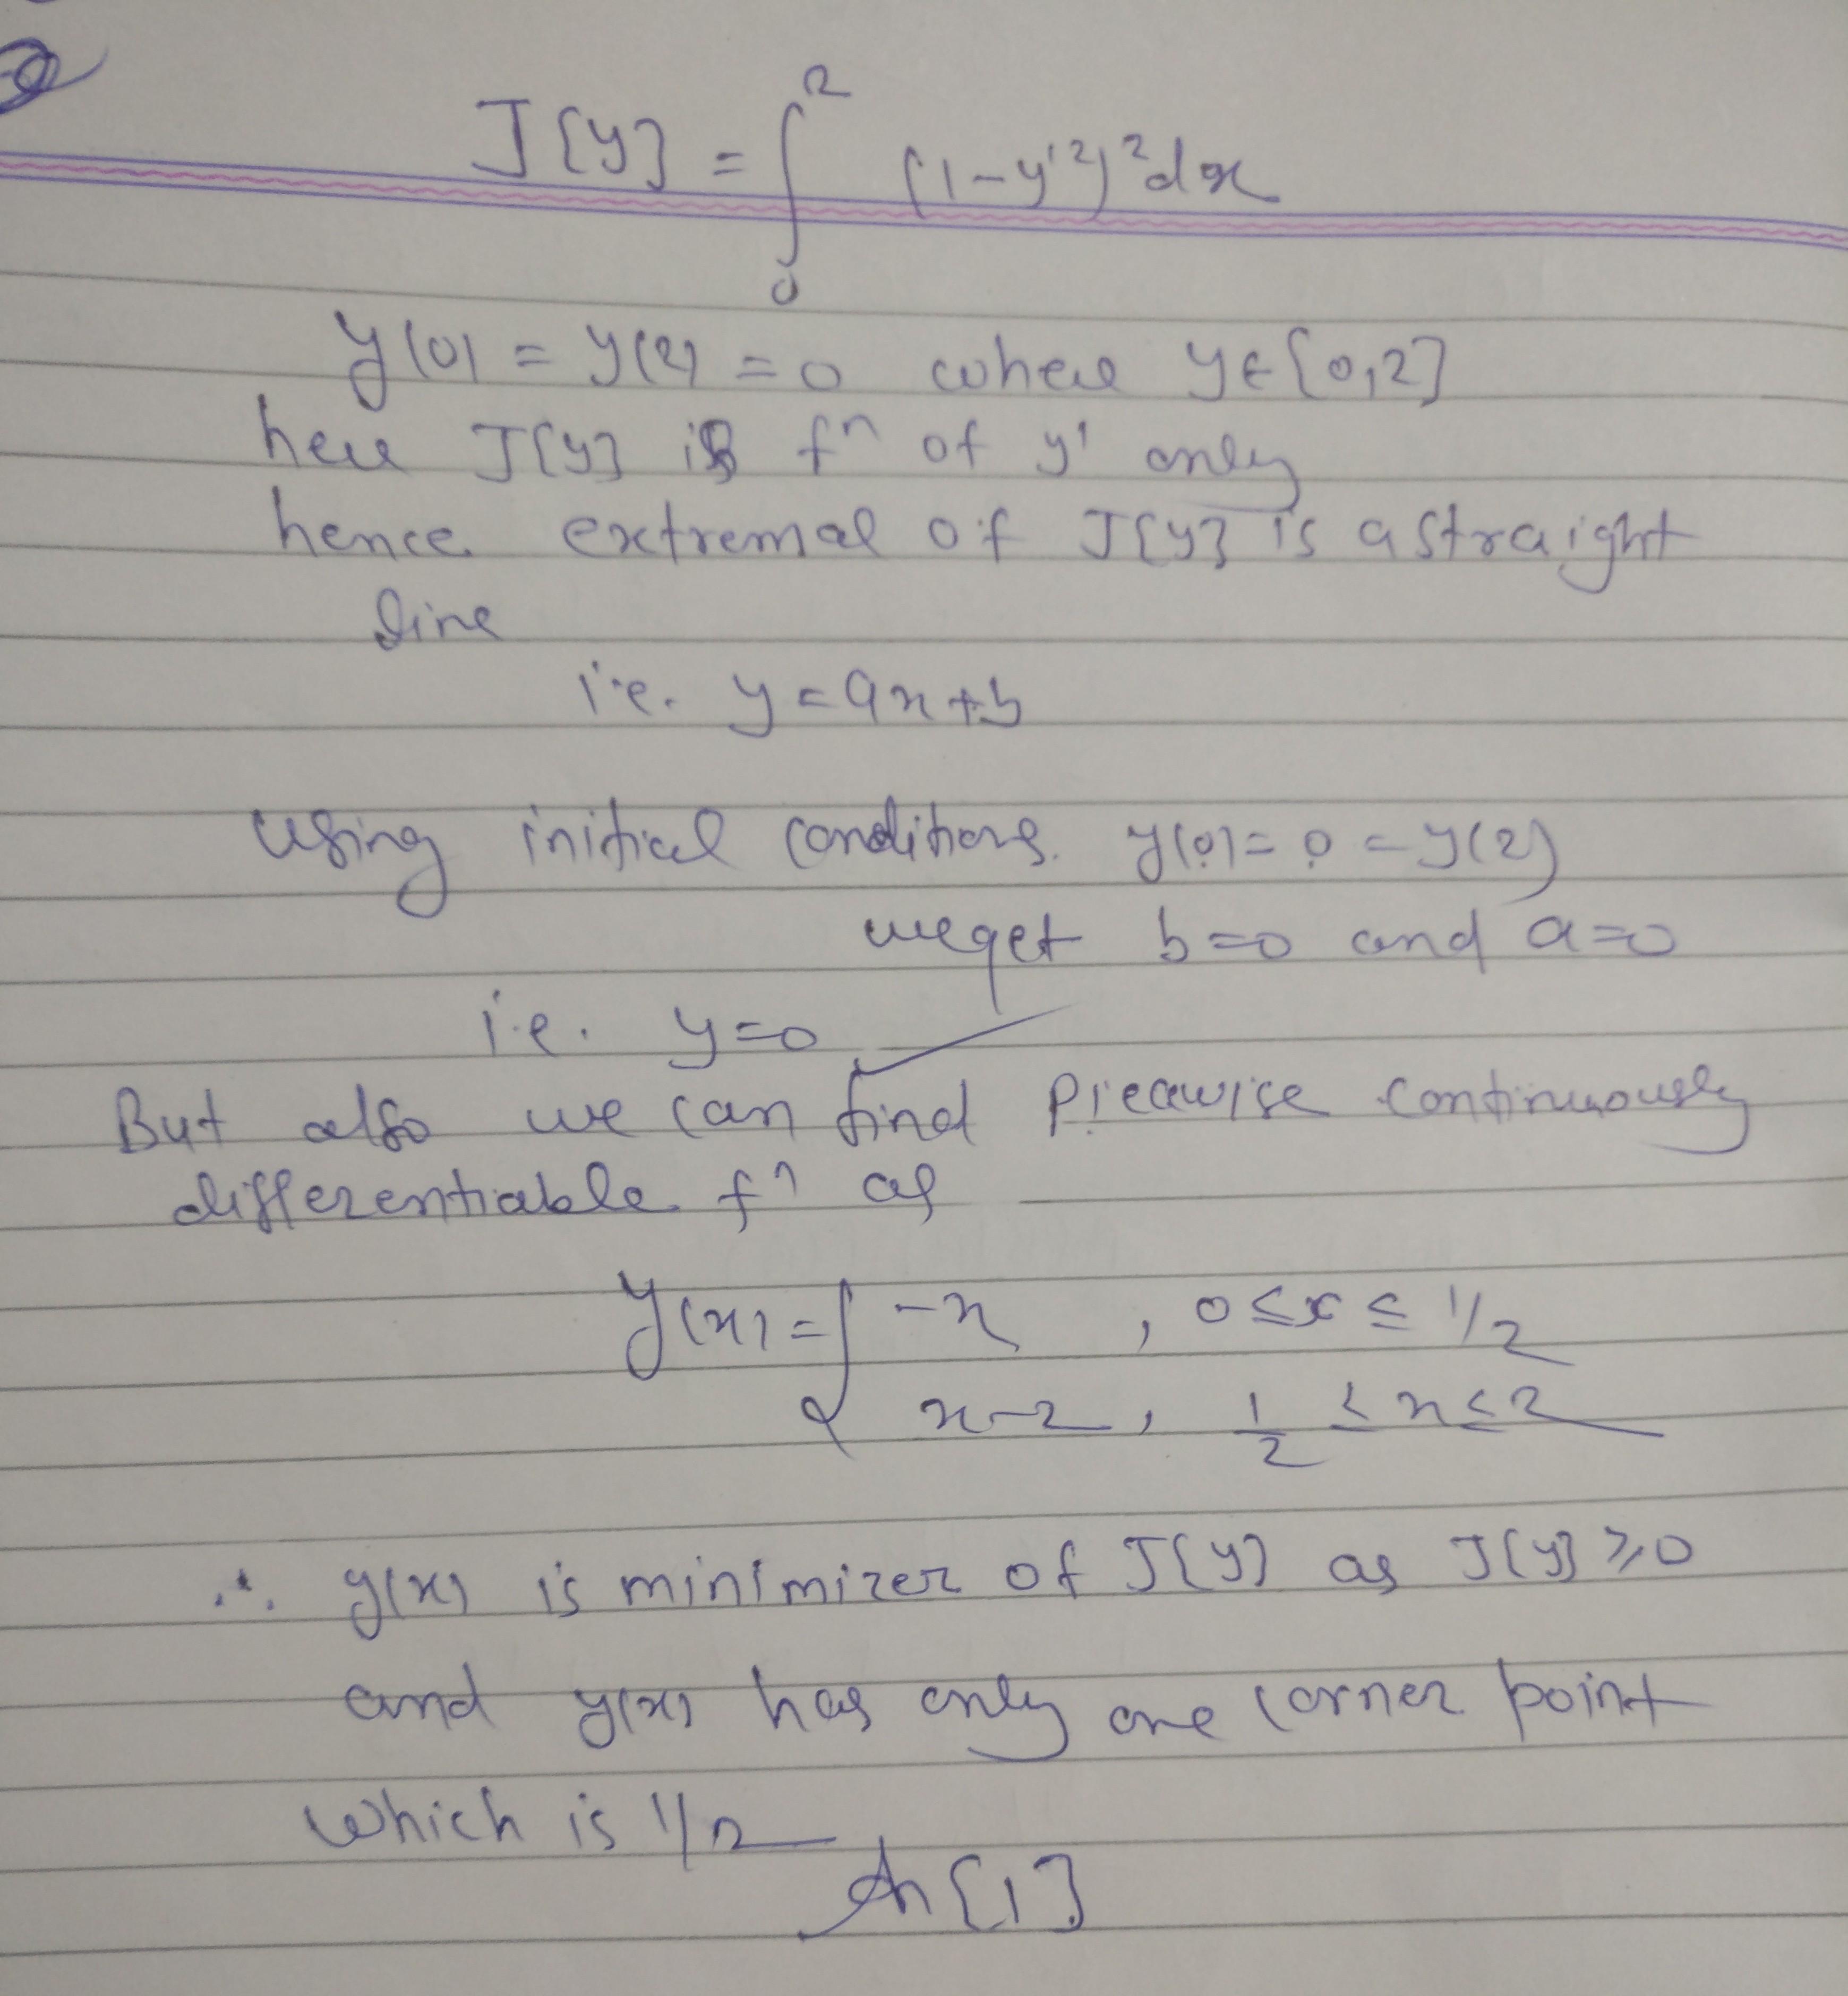 J[y] = ∫₀² (1-y'²)² dx
y(0) = y(2) = 0 where y∈[0,2]
here J[y] is fⁿ of y' only
hence extremal of J[y] is a straight
line
i.e. y = ax+b
using initial conditions. y(0) = 0 = y(2)
we get b=0 and a=0
i.e. y=0
But also we can find Piecewise continuously
differentiable fⁿ as
y(x) = { -x , 0≤x≤1/2
x-2, 1/2 ≤ x ≤ 2
∴ y(x) is minimizer of J[y] as J[y] ≥ 0
and y(x) has only one corner point
which is 1/2
An [1]